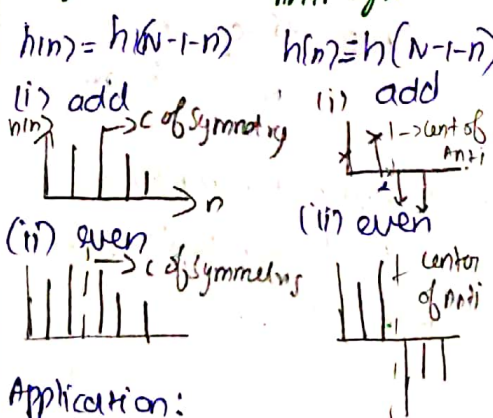 h(n) = h(N-1-n)
h(n) = h(N-1-n)
(i) add
h(n)
→ C of Symmetry
n
(i) add
→ cent of
Anti
(ii) even
→ C of Symmetry
(ii) even
center
of Anti
Application: